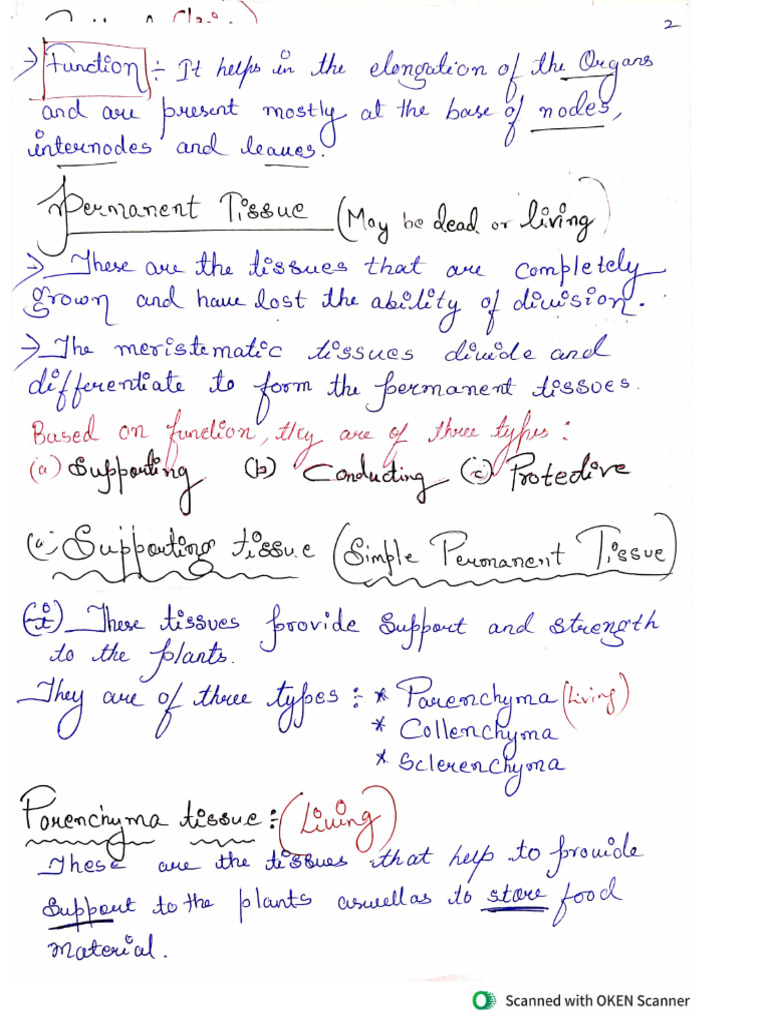 2
→ Function ÷ It helps in the elongation of the Organs
and are present mostly at the base of nodes,
internodes and leaves.
Permanent Tissue (May be dead or living)
→ These are the tissues that are completely
grown and have lost the ability of division.
→ The meristematic tissues divide and
differentiate to form the permanent tissues.
Based on function, they are of three types:
(a) Supporting (b) Conducting (c) Protective
(a) Supporting tissue (Simple Permanent Tissue)
(i) These tissues provide support and strength
to the plants.
They are of three types :- * Parenchyma (Living)
* Collenchyma
* Sclerenchyma
Parenchyma tissue :- (Living)
These are the tissues that help to provide
support to the plants aswellas to store food
material.
Scanned with OKEN Scanner